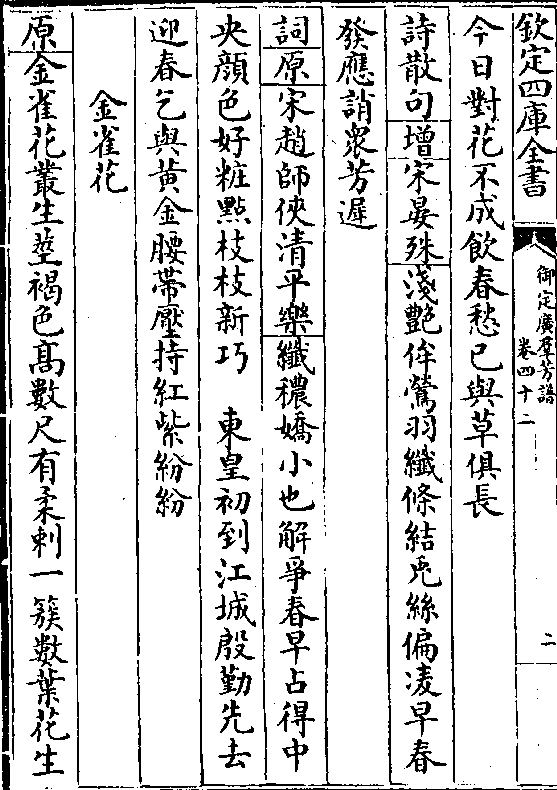 欽定四庫全書
御定廣羣芳譜
卷四十二
二
今日對花不成飲春愁已與草俱長
詩散句增宋晏殊淺艶侔鶯羽纖條結兎絲偏凌早春
發應誚衆芳遲
詞原宋趙師俠清平樂纖穠嬌小也解爭春早占得中
央顔色好粧點枝枝新巧　東皇初到江城殷勤先去
迎春乞與黄金腰帶壓持紅紫紛紛
金雀花
原金雀花叢生莖褐色高數尺有柔刺一簇數葉花生